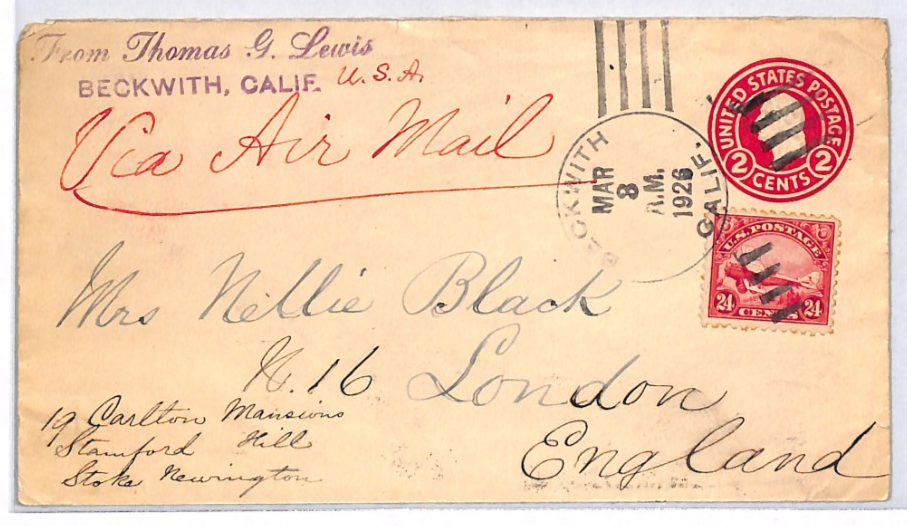 From Thomas G. Lewis
BECKWITH, CALIF. U.S.A.
Via Air Mail
BECKWITH CALIF.
MAR
8
A.M.
1926
UNITED STATES POSTAGE
2 CENTS 2
U.S. POSTAGE
24 CENTS 24
Mrs Nellie Black
N.16 London
England
19 Carlton Mansions
Stamford Hill
Stoke Newington